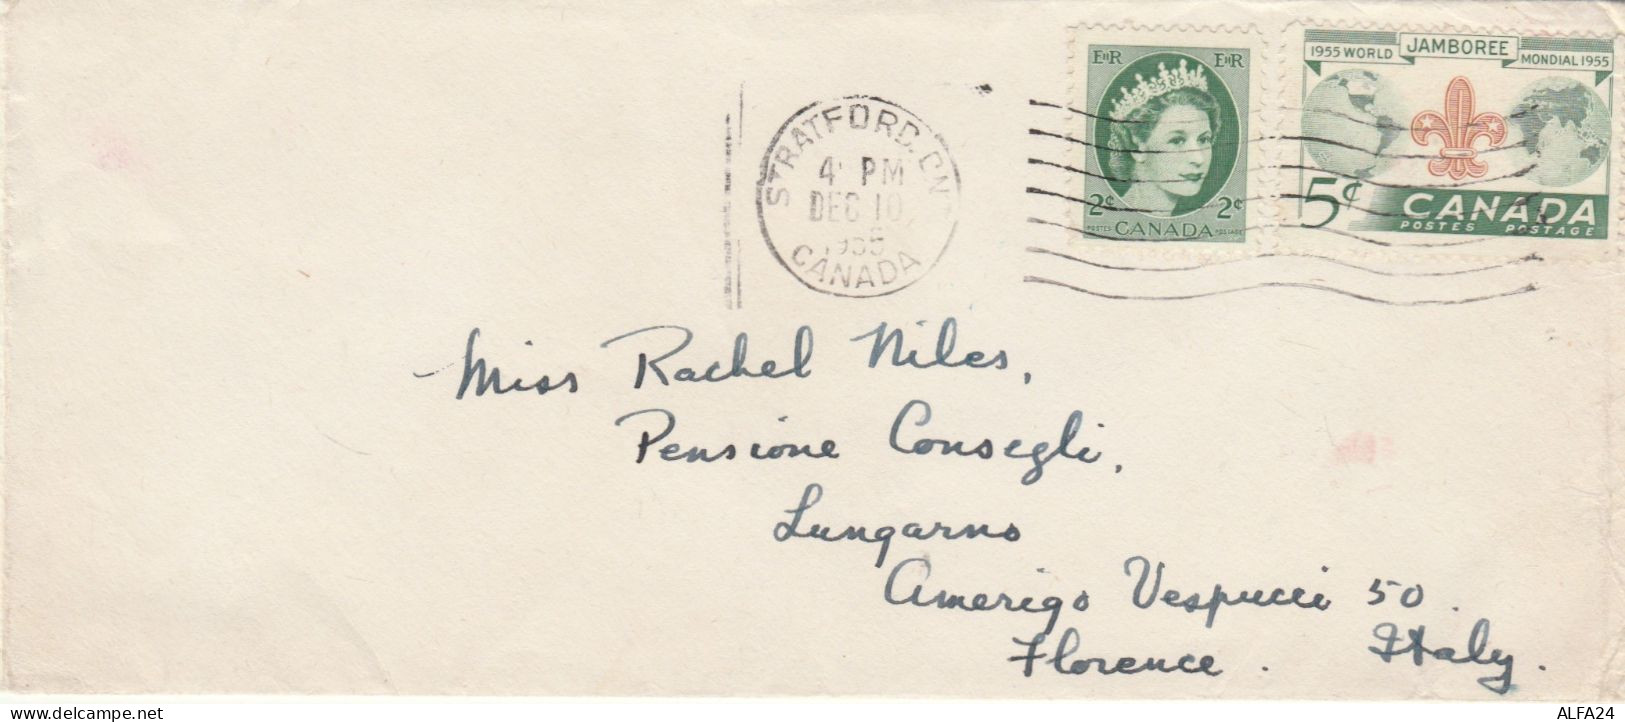 STRATFORD. ON
4 PM
DEC 10
1955
CANADA
EIIR EIIR
2¢ 2¢
POSTES CANADA POSTAGE
1955 WORLD JAMBOREE MONDIAL 1955
5¢ CANADA
POSTES POSTAGE
Miss Rachel Niles,
Pensione Consegli,
Lungarno
Amerigo Vespucci 50.
Florence. Italy.
delcampe.net
ALFA24